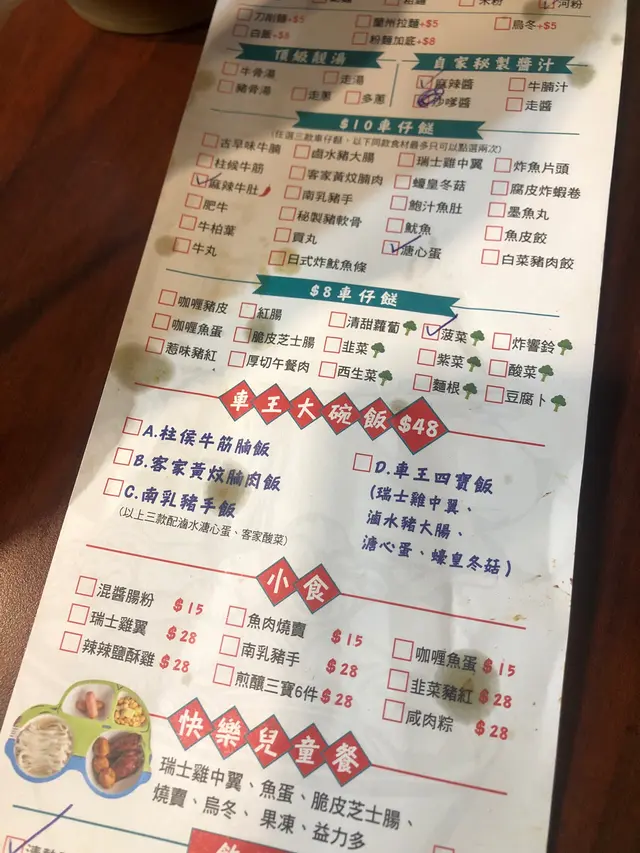 河粉
刀削麵+$5 蘭州拉麵+$5 烏冬+$5
白飯+$8 粉麵加底+$8
頂級靚湯
牛骨湯 走湯
豬骨湯 走蔥 多蔥
自家秘製醬汁
麻辣醬 牛腩汁
沙嗲醬 走醬
$10車仔餸
(任選三款車仔餸，以下同款食材最多只可以點選兩次)
古早味牛腩 鹵水豬大腸 瑞士雞中翼 炸魚片頭
柱候牛筋 客家黃炆腩肉 蠔皇冬菇 腐皮炸蝦卷
麻辣牛肚 南乳豬手 鮑汁魚肚 墨魚丸
肥牛 秘製豬軟骨 魷魚 魚皮餃
牛柏葉 貢丸 溏心蛋 白菜豬肉餃
牛丸 日式炸魷魚條
$8車仔餸
咖喱豬皮 紅腸 清甜蘿蔔 菠菜 炸響鈴
咖喱魚蛋 脆皮芝士腸 韭菜 紫菜 酸菜
惹味豬紅 厚切午餐肉 西生菜 麵根 豆腐卜
車王大碗飯 $48
A.柱侯牛筋腩飯
B.客家黃炆腩肉飯
C.南乳豬手飯
(以上三款配滷水溏心蛋、客家酸菜)
D.車王四寶飯
(瑞士雞中翼、
滷水豬大腸、
溏心蛋、蠔皇冬菇)
小食
混醬腸粉 $15 魚肉燒賣 $15 咖喱魚蛋 $15
瑞士雞翼 $28 南乳豬手 $28 韭菜豬紅 $28
辣辣鹽酥雞 $28 煎釀三寶6件 $28 咸肉粽 $28
快樂兒童餐
瑞士雞中翼、魚蛋、脆皮芝士腸、
燒賣、烏冬、果凍、益力多